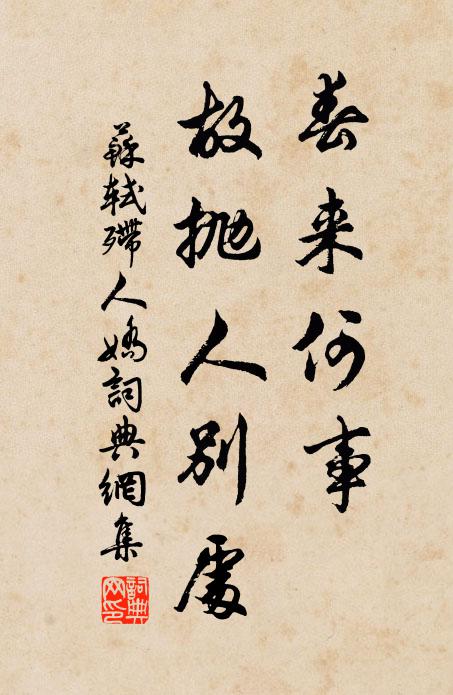 春来何事
故抛人別處
蘇軾殢人嬌詞典網集
詞典網印